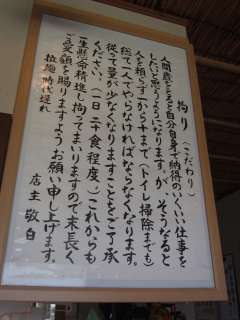 拘り(こだわり)
人間歳をとると自分自身で納得のいくいい仕事を
したいと思うようになります。が そうなると
人を頼らず一から十まで(トイレ掃除までも)
総て一人でやらなければならなくなります。
従って量が少なくなりますことをご了承
ください。(一日二十食程度。)これからも
一生懸命精進し拘ってまいりますので末長く
ご愛顧を賜りますようお願い申し上げます。
拉麺 時代遅れ
店主 敬白